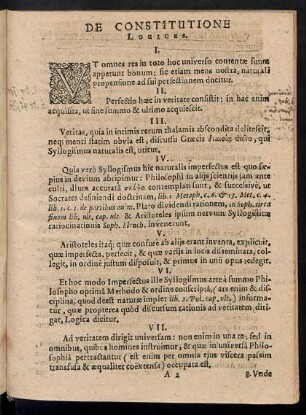 DE CONSTITUTIONE
LOGICES.
I.
VT omnes res in toto hoc universo contentæ suum
apperunt bonum; sic etiam mens nostra, naturali
propensione ad sui perfectionem ducitur.
II.
Perfectio hæc in veritate consistit; in hac enim
acquisita, ut sine summo & ultimo acquiescit.
III.
Veritas, quia in intimis rerum thalamis abscondita delitescit,
neq; menti statim obvia est, discursu Græcis διανοίας dicto, qui
Syllogismus naturalis est, iutitur.
IV.
Quia verò Syllogismus hic naturalis imperfectus est quo sæ-
pius in devium abripimur: Philosophi in aliis scientiis jam ante
culti, illum accuratâ contemplati sunt, & successivè, ut
Socrates definiendi doctrinam, lib. 1. Metaph. c. 6. & 13. Met. c. 4.
lib. 1. c. 1. de partibus Plato dividendi rationem, in Soph. circa
finem lib, nis, cap. ult. & Aristoteles ipsum nervum Syllogisticæ
ratiocinationis Soph. Elench. invenerunt.
V.
Aristoteles itaq; quæ confusè ab aliis erant inventa, explicuit,
quæ imperfectè, perfecit, & quæ in variis locis disseminata, col-
legit, in ordinē justum disposuit, & primus in unū opus redegit.
VI.
Et hoc modo Imperfectus ille Syllogismus arte à summo Phi-
losopho optimâ Methodo & ordine conscriptâ, (ars enim & di-
sciplina, quod deest naturæ implet lib. 7. Pol. cap. ult.) informa-
tur, quæ propterea quòd discursum rationis ad veritatem diri-
gat, Logica dicitur.
VII.
Ad veritatem dirigit universam: non enim in una re, sed in
omnibus, quibus homines instruimur, & quæ in universâ Philo-
sophiâ pertractantur (est enim per omnia ejus viscera passim
transfusa & æqualiter coëxtensa) occupata est.
A 2 8. Vnde